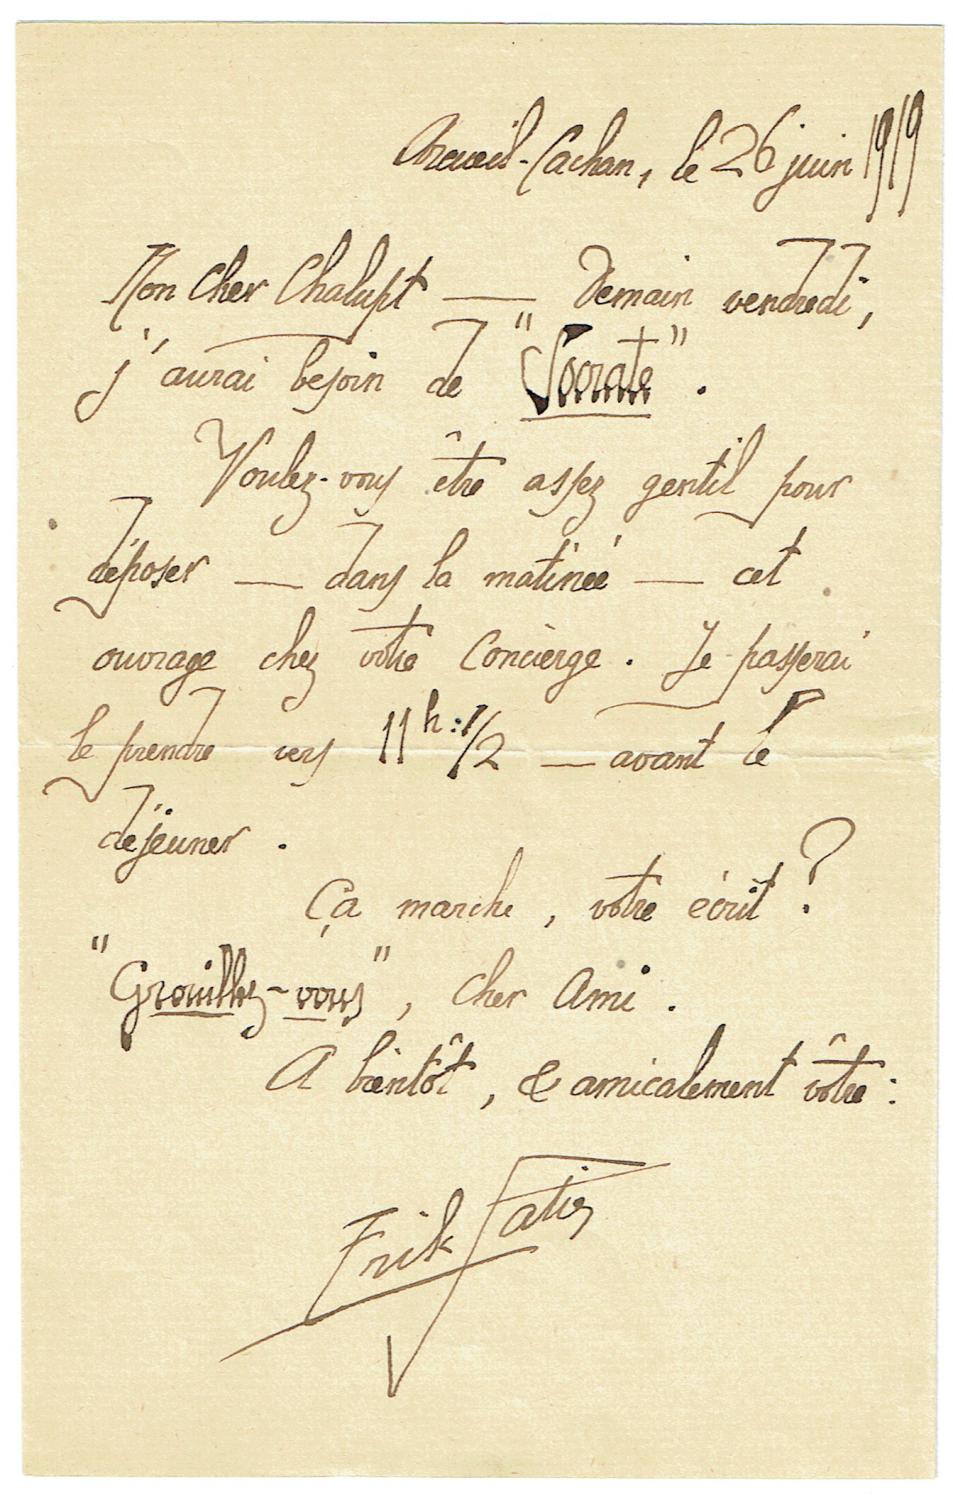 Arcueil-Cachan, le 26 juin 1919
Mon cher Chalupt — Demain vendredi,
j'aurai besoin de "Socrate".
Voulez-vous être assez gentil pour
déposer — dans la matinée — cet
ouvrage chez votre concierge. Je passerai
le prendre vers 11h:1/2 — avant le
déjeuner.
Ça marche, votre écrit?
"Grouillez-vous", cher Ami.
A bientôt, & amicalement vôtre:
Erik Satie